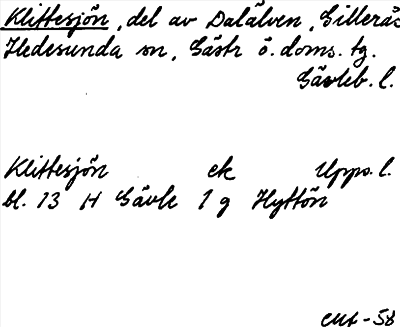 Klittesjön, del av Dalälven, Gilleråс
Hedesunda sn, Gästr ö. doms. tg.
Gävleb. l.
Klittesjön ek Upps. l.
bl. 13 H Gävle 1 g Hyttön
-58